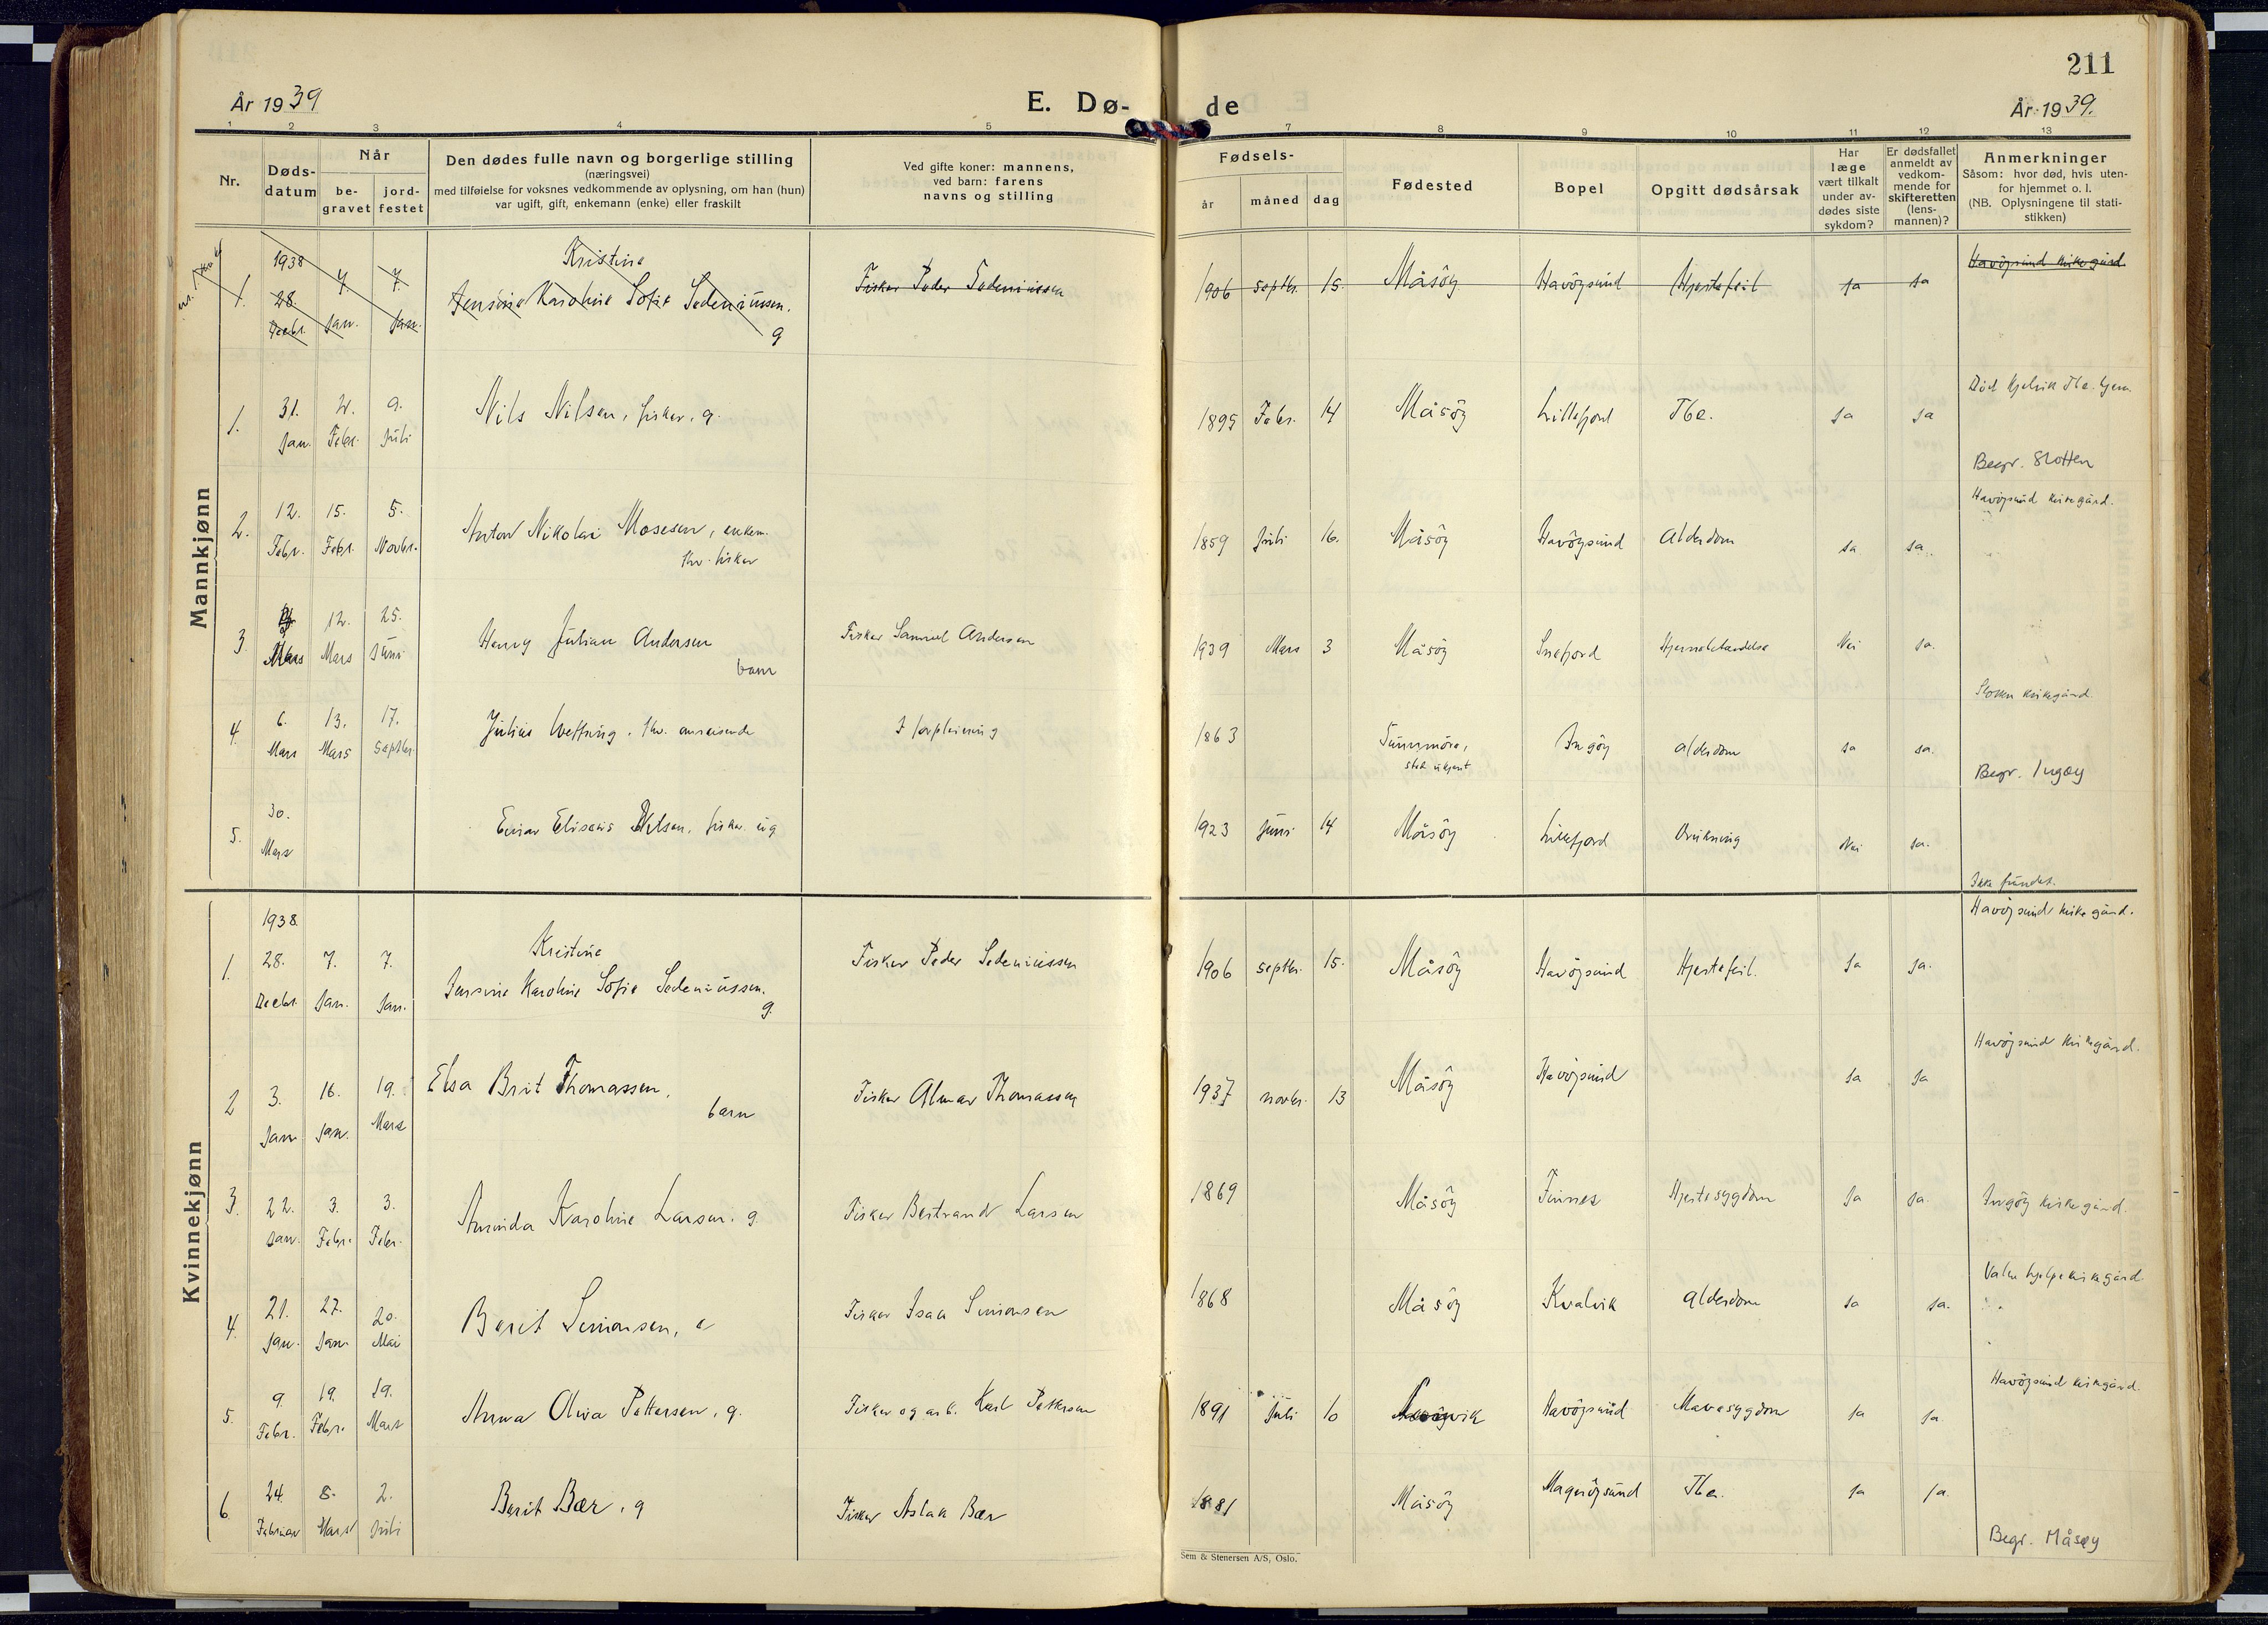 211
År 1939
E. Dø-
de
År 1939.
1 2 3 4 5 7 8 9 10 11 12 13
Nr.
Døds-
datum
Når
be-
gravet
jord-
festet
Den dødes fulle navn og borgerlige stilling
(næringsvei)
med tilføielse for voksnes vedkommende av oplysning, om han (hun)
var ugift, gift, enkemann (enke) eller fraskilt
Ved gifte koner: mannens,
ved barn: farens
navns og stilling
Fødsels-
år måned dag
Fødested
Bopel
Opgitt dødsårsak
Har
læge
vært tilkalt
under av-
dødes siste
sykdom?
Er dødsfallet
anmeldt av
vedkom-
mende for
skifteretten
(lens-
mannen)?
Anmerkninger
Såsom: hvor død, hvis uten-
for hjemmet o. l.
(NB. Oplysningene til stati-
stikken)
Mannkjønn
1938 Kristine Havöysund kirkegård
1. 28. 7. 7. Jensine Karoline Sofie Sedeniussen. Fisker Peder Sedeniussen 1906 Septbr. 15. Måsöy Havöysund Hjertefeil Ja Ja
Decbr. Jan. Jan. g
Död Kjelvik Tbc. hjem
1. 31. 2. 9. Nils Nilsen, fisker, g. 1895 Febr. 14 Måsöy Lillefjord Tbc. Ja Ja
Jan. Febr. Juli
Begr. Slotten
Havöysund kirkegård.
2. 12. 15. 5. Anton Nikolai Mosesen, enkem. 1859 Juli 16. Måsöy Havöysund Alderdom Ja Ja.
Febr. Febr. Novbr. fhv. fisker
3 12. 25. Henry Julian Andersen Fisker Samuel Andersen 1939 Mars 3 Måsöy Snefjord Hjernebetendelse Nei Ja.
Mars Mars Juni barn
Slotten kirkegård.
4. 6. 13. 17. Julius Wefring, fhv. omreisende I forpleining 1863 Sunnmöre, Ingöy Alderdom Ja Ja.
Mars Mars Septbr. sted ukjent
Begr. Ingøy
5. 30. Einar Eliseus Nilsen, fisker ug 1923 Juni 14 Måsöy Lillefjord Drukning Nei Ja.
Mars
Ikke fundet.
Kvinnekjønn
1938. Kristine Havöysund kirkegård.
1. 28. 7. 7. Jensine Karoline Sofie Sedeniussen. Fisker Peder Sedeniussen 1906 Septbr. 15. Måsöy Havöysund Hjertefeil. Ja Ja.
Decbr. Jan. Jan. g.
Havöysund kirkegård.
2 3. 16. 19. Elsa Brit Thomassen, Fisker Almar Thomassen 1937 Novbr. 13 Måsöy Havöysund Ja Ja
Jan. Jan. Mars barn
3. 22. 3. 3. Aminda Karoline Larsen. g. Fisker Bertrand Larsen 1869 Måsöy Finnes Hjertesygdom Ja Ja. Ingöy kirkegård.
Jan. Febr. Febr.
hjelpekirkegård
4. 21. 27. 20. Berit Simonsen, e Fisker Isak Simonsen 1868 Måsöy Kvalvik Alderdom Ja Ja.
Jan. Jan. Mai
Havöysund kirkegård.
5. 9. 19. 19. Anna Oliva Pettersen, g. Fisker og arb. Karl Pettersen 1891 Juli 10 Havöysund Mavesygdom Ja Ja.
Febr. Febr. Mars
6 24. 8. 2. Berit Bær, g Fisker Aslak Bær 1881 Måsöy Magerøysund Tbc. Ja Ja.
Februar Mars Juli
Begr. Måsøy
Sem & Stenersen A/S, Oslo.